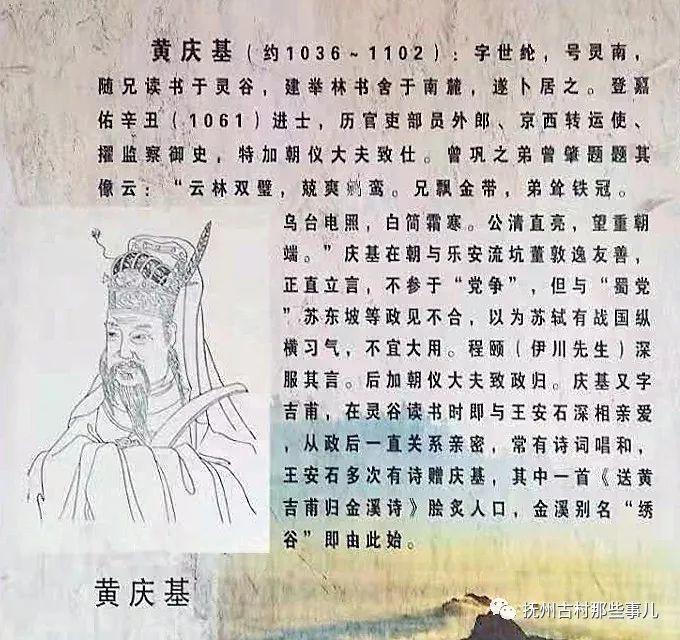 黄庆基（约1036～1102）：字世纶，号灵南，
随兄读书于灵谷，建举林书舍于南麓，遂卜居之。登嘉
佑辛丑（1061）进士，历官吏部员外郎、京西转运使、
擢监察御史，特加朝仪大夫致仕。曾巩之弟曾肇题题其
像云：“云林双璧，兢爽鸾。兄飘金带，弟耸铁冠。
乌台电照，白简霜寒。公清直亮，望重朝
端。”庆基在朝与乐安流坑董敦逸友善，
正直立言，不参于“党争”，但与“蜀党
”苏东坡等政见不合，以为苏轼有战国纵
横习气，不宜大用。程颐（伊川先生）深
服其言。后加朝仪大夫致政归。庆基又字
吉甫，在灵谷读书时即与王安石深相亲爱
，从政后一直关系亲密，常有诗词唱和，
王安石多次有诗赠庆基，其中一首《送黄
吉甫归金溪诗》脍炙人口，金溪别名“绣
谷”即由此始。
黄庆基
抚州古村那些事儿